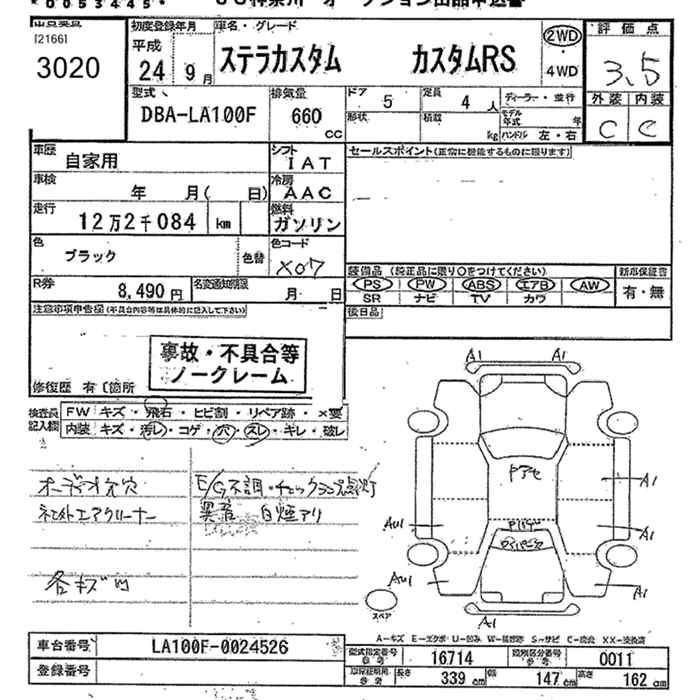 *0053445*
出品番号
[2166]
3020
初度登録年月
平成
24 9 月
車名・グレード
ステラカスタム カスタムRS
2WD
4WD
評価点
3.5
外装 内装
C C
型式
DBA-LA100F
排気量
660
cc
ドア
5
定員
4 人
形状
積載
kg
ディーラー・並行
モデル年式 年
ハンドル 左・右
車歴
自家用
シフト
IAT
車検
年 月( 日)
冷房
AAC
走行
12万2千084 km
燃料
ガソリン
色
ブラック
色替
色コード
X07
セールスポイント(正常に機能するものに限ります)
装備品 (純正品に限り○をつけてください)
新車保証書
PS PW ABS エアB AW
SR ナビ TV カワ
有・無
後日品
R券
8,490 円
名変通知期限
月 日
注意事項申告欄(不具合内容等は具体的に記入して下さい)
事故・不具合等
ノークレーム
修復歴 有〔箇所
検査員
記入欄
FW キズ・飛石・ヒビ割・リペア跡・×要
内装 キズ・汚レ・コゲ・穴・スレ・キレ・破レ
オーディオ穴 E/G不調・チェックランプ点灯
社外エアクリーナー 異音 白煙アリ
各キズ凹
A1 A1
ドアモ
A1
AU1
A1
AU1
A1
A1
スペア
A-キズ E-エクボ U-凹み S-サビ C-腐食
車台番号
LA100F-0024526
型式指定番号
参考
16714
類別区分番号
参考
0011
登録番号
車庫証明用
参考
長さ
339 cm
幅
147 cm
高さ
162 cm